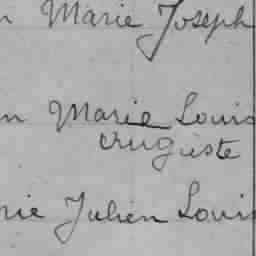 n Marie Joseph
n Marie Louis
Auguste
rie Julien Louis